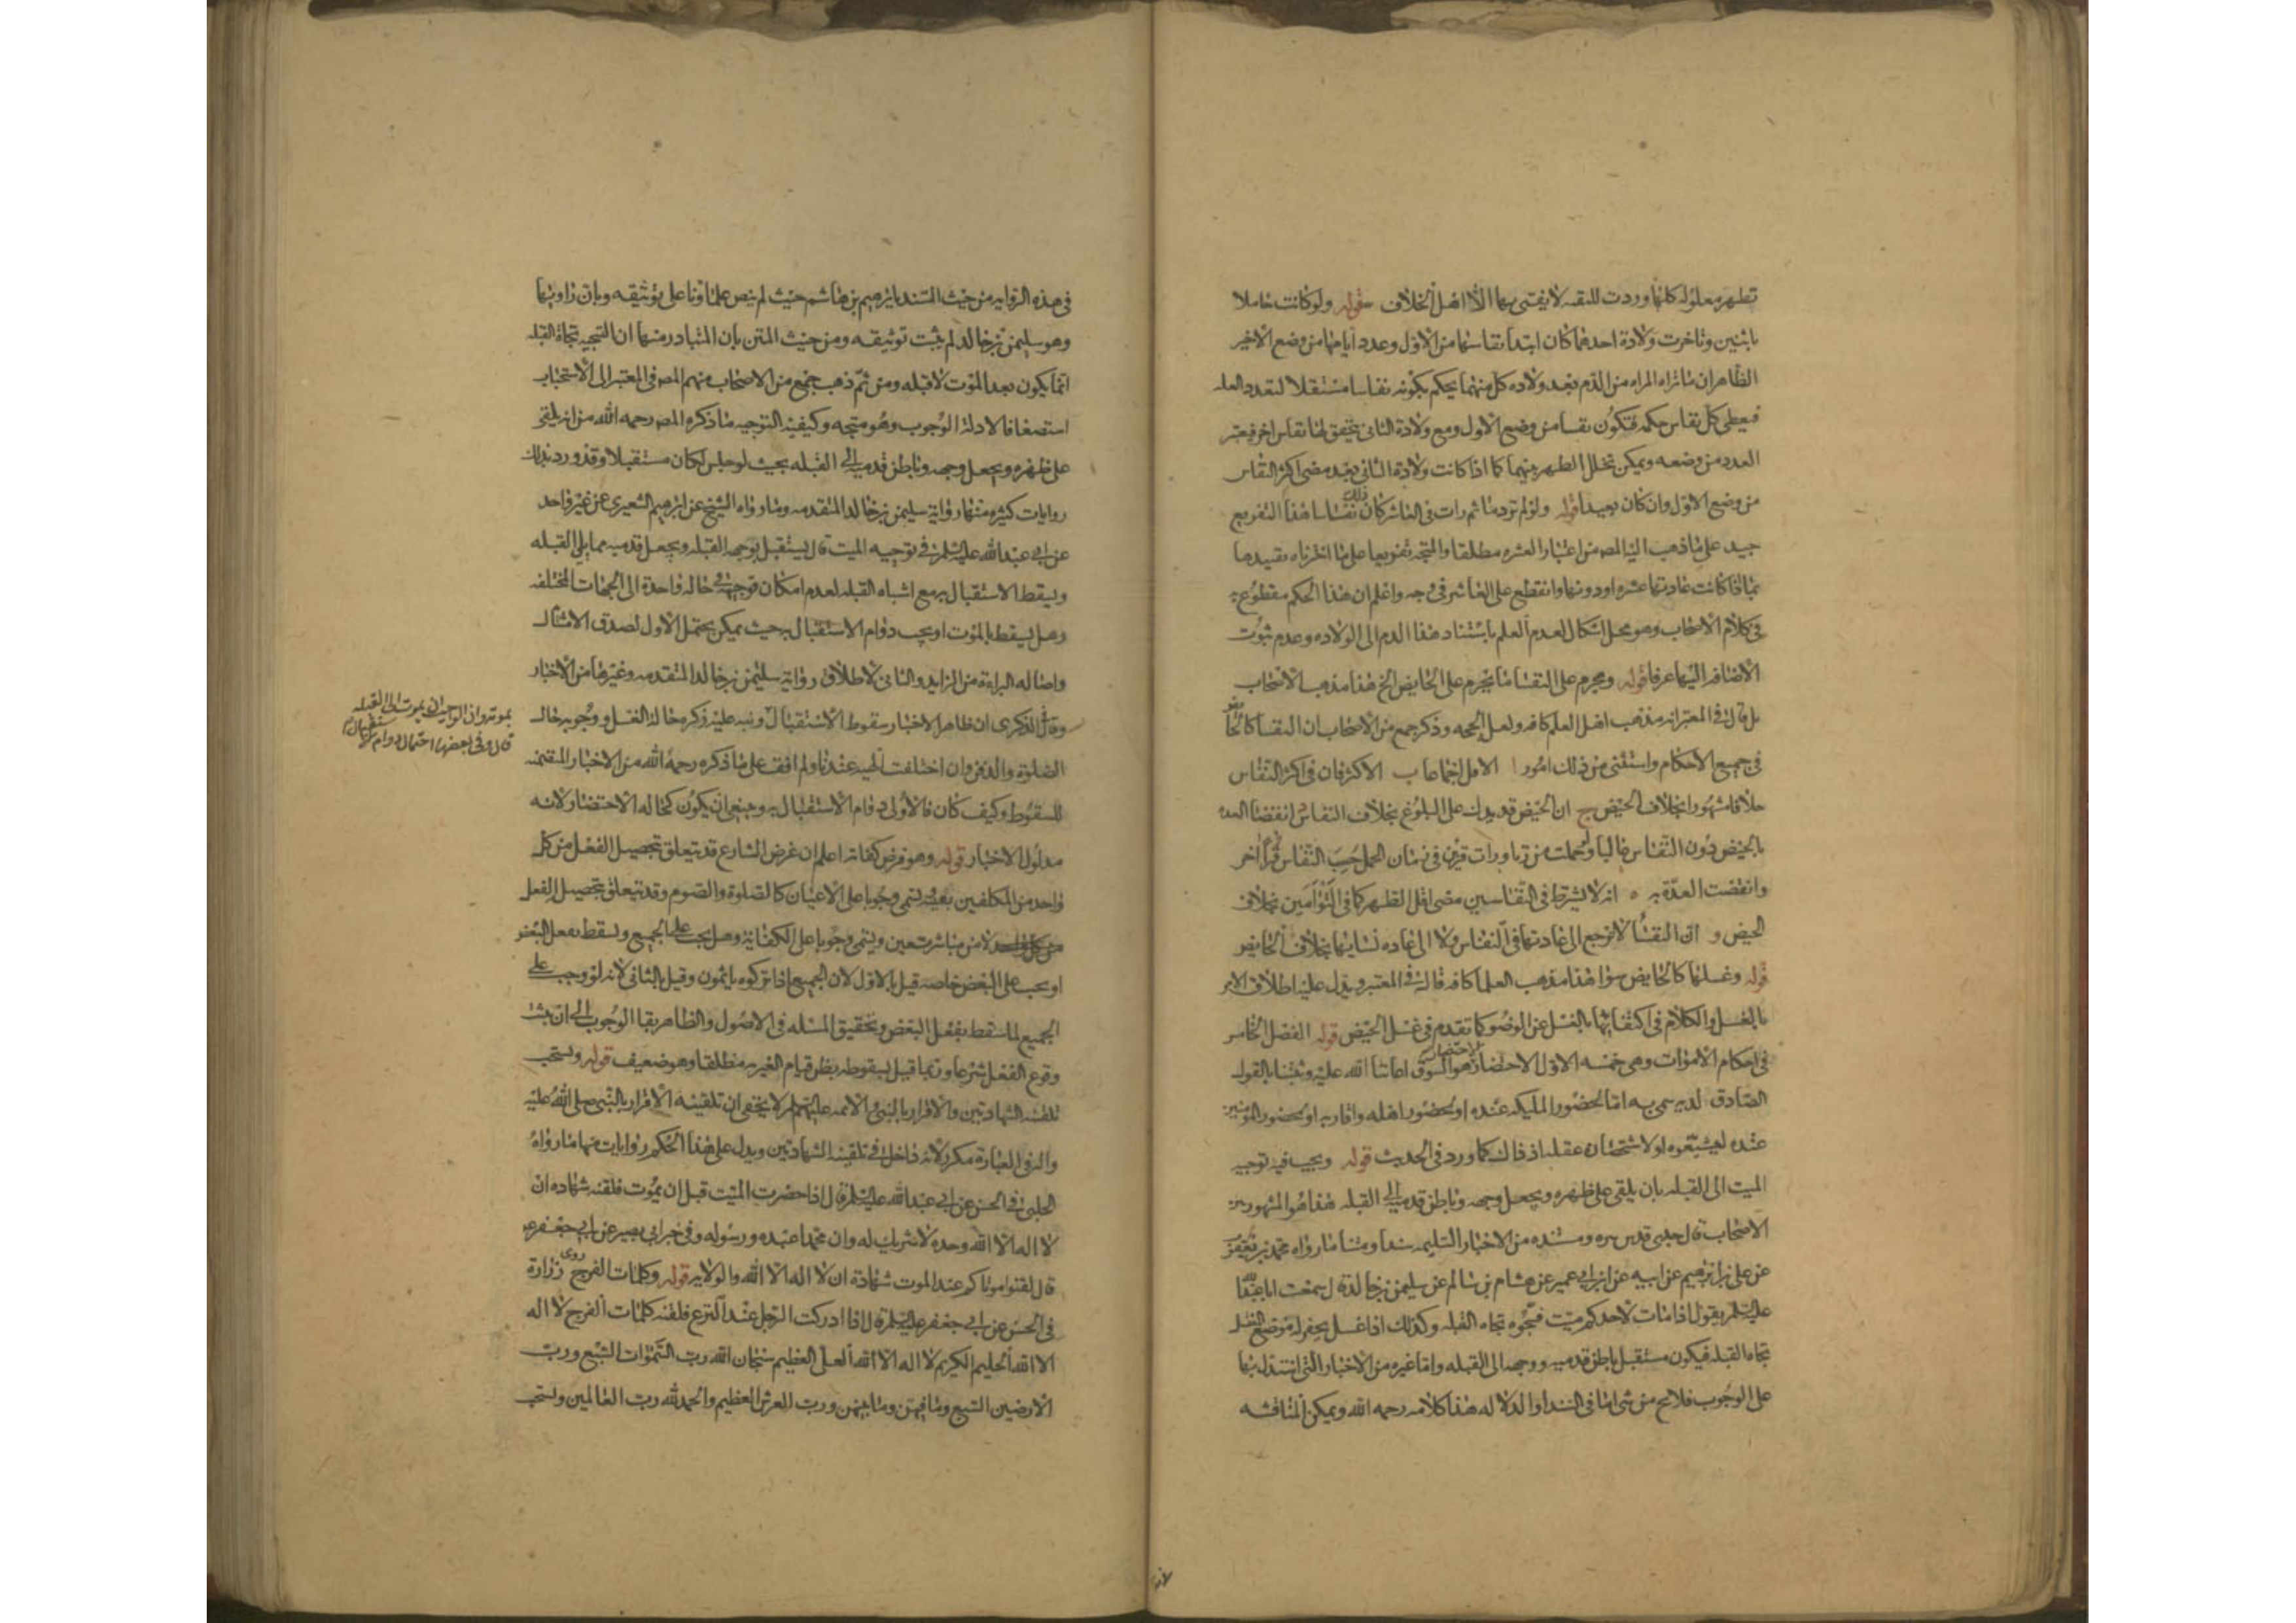 تطهر معلوله كلها وردت للتقيه لا يفتى بها الا اهل الخلاف قوله ولو كانت حاملا
باثنين وتاخرت ولادة احدهما كان ابتدا نفاسها من الاول وعدد ايامها من وضع الاخير
الظاهر ان ما تراه المراه من الدم بعد ولاده كل منهما يحكم بكونه نفاسا مستقلا لتعدد العله
فيعطى كل نفاس حكمه فتكون نفسا من وضع الاول ومع ولادة الثانى يتحقق لها نفاس اخر فيعتبر
العدد من وضعه ويمكن تخلل الطهر بينهما كما اذا كانت ولادة الثانى بعد مضى اكثر النفاس
من وضع الاول وان كان بعيدا قوله ولو لم تر دما ثم رات فى العاشر كان ذلك نفاسا هذا التفريع
جيد على ما ذهب اليه المص من اعتبار العشره مطلقا والمتجه تفريعا على ما اخترناه تقييدها
بما اذا كانت عادتها عشره او دونها وانقطع على العاشر فى وجه واعلم ان هذا الحكم مقطوع به
فى كلام الاصحاب وهو محل اشكال لعدم العلم باستناد هذا الدم الى الولاده وعدم ثبوت
الاضافه اليها عرفا قوله ويحرم على النفسا ما يحرم على الحايض الخ هذا مذهب الاصحاب
بل قال فى المعتبر انه مذهب اهل العلم كافه ولعل الحجه وذكر جمع من الاصحاب ان النفسا كالحايض
فى جميع الاحكام واستثنى من ذلك امور ا الاقل اجماعا ب الاكثر فان فى اكثر النفاس
خلافا مشهورا بخلاف الحيض ج ان الحيض قد يدل على البلوغ بخلاف النفاس د انقضا العده
بالحيض دون النفاس غالبا ولو حملت من زنا ورات قرين فى زمان الحمل حسب النفاس قرأ اخر
وانقضت العدة به ه انه لا يشترط فى النفاسين مضى اقل الطهر كما فى التوأمين بخلاف
الحيض و ان النفسا لا ترجع الى عادتها فى النفاس ولا الى عاده نسايها بخلاف الحايض
قوله وغسلها كالحايض سوا هذا مذهب العلما كافه قاله فى المعتبر ويدل عليه اطلاق الامر
بالغسل والكلام فى اكتفايها بالغسل عن الوضو كما تقدم فى غسل الحيض قوله الفصل الخامس
فى احكام الاموات وهى خمسه الاول الاحتضار الاحتضار هو السوق اعاننا الله عليه وثبتنا بالقول
الصادق لديه سمى به اما لحضور المليكه عنده او لحضور اهله واقاربه او لحضور المومنين
عنده ليشيعوه او لاستحضان عقله اذ ذاك كما ورد فى الحديث قوله ويجب فيه توجيه
الميت الى القبله بان يلقى على ظهره ويجعل وجهه وباطن قدميه الى القبله هذا هو المشهور بين
الاصحاب قال جدى قدس سره ومستنده من الاخبار السليمه سندا ومتنا ما رواه محمد بن يعقوب
عن على بن ابرهيم عن ابيه عن ابن ابى عمير عن هشام بن سالم عن سليمن بن خالد قال سمعت ابا عبد الله
عليه السلم يقول اذا مات لاحدكم ميت فسجوه تجاه القبله وكذلك اذا غسل يحفر له موضع الغسل
تجاه القبله فيكون مستقبل باطن قدميه ووجهه الى القبله واما غيره من الاخبار التى استدل بها
على الوجوب فلا يخ من شى اما فى السند او الدلاله هذا كلامه رحمه الله ويمكن المناقشه
فى هذه الروايه من حيث السند بابرهيم بن هاشم حيث لم ينص علماؤنا على توثيقه وبان راويها
وهو سليمن بن خالد لم يثبت توثيقه ومن حيث المتن بان المتبادر منها ان التسجيه تجاه القبله
انما يكون بعد الموت لا قبله ومن ثم ذهب جمع من الاصحاب منهم المص فى المعتبر الى الاستحباب
استضعافا لادلة الوجوب وهو متجه وكيفية التوجيه ما ذكره المص رحمه الله من انه يلقى
على ظهره ويجعل وجهه وباطن قدميه الى القبله بحيث لو جلس لكان مستقبلا وقد ورد بذلك
روايات كثيره منها رواية سليمن بن خالد المتقدمه وما رواه الشيخ عن ابرهيم الشعيرى عن غير واحد
عن ابى عبد الله عليه السلم فى توجيه الميت قال يستقبل بوجهه القبله ويجعل قدميه مما يلى القبله
ويسقط الاستقبال به مع اشتباه القبله لعدم امكان توجهه فى حالة واحدة الى الجهات المختلفه
وهل يسقط بالموت او يجب دوام الاستقبال به حيث يمكن يحتمل الاول لصدق الامتثال
واصاله البراءة من الزايد والثانى لاطلاق رواية سليمن بن خالد المتقدمه وغيرها من الاخبار
وقال فى الذكرى ان ظاهر الاخبار سقوط الاستقبال بموته وان الواجب ان يموت الى القبله
قال وفى بعضها احتمال دوام الاستقبال
ونبه عليه ذكره حالة الغسل ووجوبه حال
الصلوة والدفن وان اختلفت الهيئه عندنا ولم اقف على ما ذكره رحمه الله من الاخبار المتضمنه
للسقوط وكيف كان فالاولى دوام الاستقبال به وينبغى ان يكون كحاله الاحتضار لانه
مدلول الاخبار قوله وهو فرض كفايه اعلم ان غرض الشارع قد يتعلق بتحصيل الفعل من كل
واحد من المكلفين بعينه يسمى وجوبا على الاعيان كالصلوة والصوم وقد يتعلق بتحصيل الفعل
لا من مباشر معين ويسمى وجوبا على الكفاية وهل يجب على الجميع ويسقط بفعل البعض
او يجب على البعض خاصه قيل بالاول لان الجميع اذا تركوه ياثمون وقيل بالثانى لانه لو وجب على
الجميع لما سقط بفعل البعض وتحقيق المسئله فى الاصول والظاهر بقا الوجوب الى ان يثبت
وقوع الفعل شرعا وربما قيل بسقوطه بظن قيام الغير به مطلقا وهو ضعيف قوله ويستحب
تلقينه الشهادتين والاقرار بالنبى والائمه عليهم السلم لا يخفى ان تلقينه الاقرار بالنبى صلى الله عليه
واله فى العبارة مكرر لانه داخل فى تلقينه الشهادتين ويدل على هذا الحكم روايات منها ما رواه
الحلبى فى الحسن عن ابى عبد الله عليه السلم قال اذا حضرت الميت قبل ان يموت فلقنه شهاده ان
لا اله الا الله وحده لا شريك له وان محمدا عبده ورسوله وفى خبر ابى بصير عن ابى جعفر ع
قال لقنوا موتاكم عند الموت شهادة ان لا اله الا الله والولايه قوله وكلمات الفرج روى زرارة
فى الحسن عن ابى جعفر عليه السلم قال اذا ادركت الرجل عند النزع فلقنه كلمات الفرج لا اله
الا الله الحليم الكريم لا اله الا الله العلى العظيم سبحان الله رب السموات السبع ورب
الارضين السبع وما فيهن وما بينهن ورب العرش العظيم والحمد لله رب العالمين ويستحب